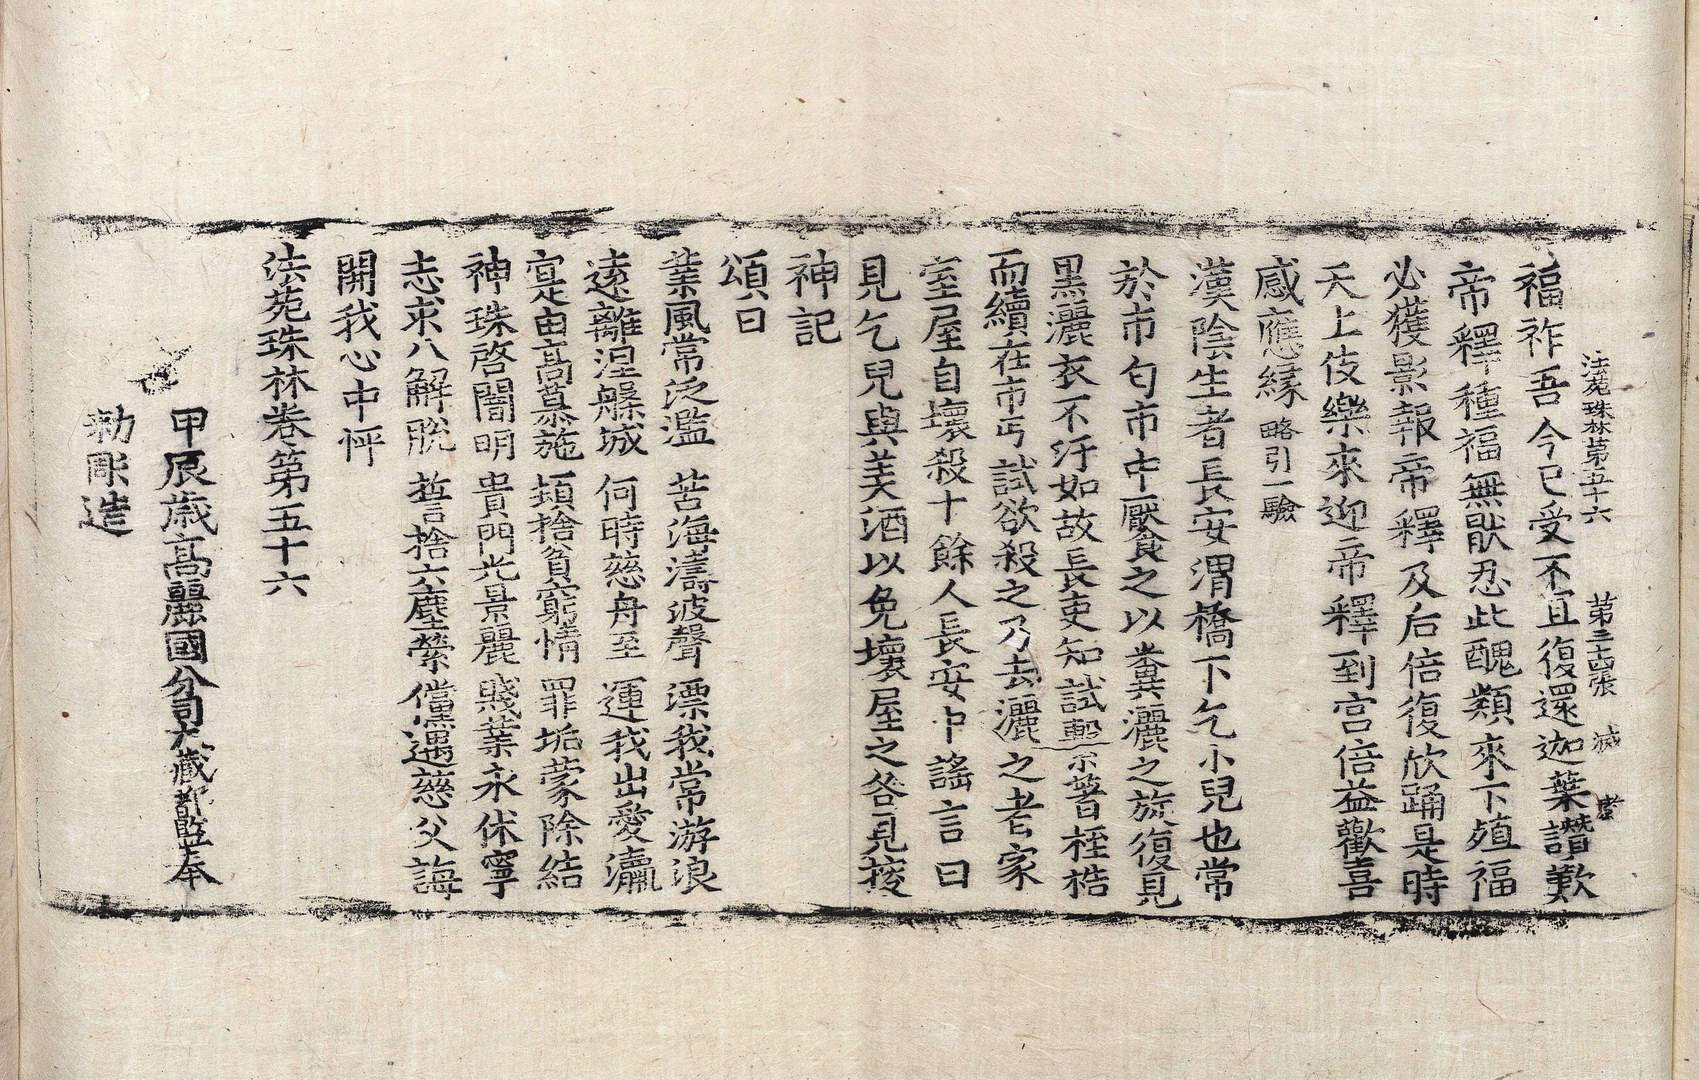 法苑珠林第五十六　第三十四張
福祚吾今已受不宜復還迦葉讃歎
帝釋種福無猒忍此醜類來下殖福
必獲影報帝釋及后倍復欣踊是時
天上伎樂來迎帝釋到宮倍益歡喜
感應緣略引一驗
漢陰生者長安渭橋下乞小兒也常
於市匃市中厭之以糞灑之旋復見
黑灑衣不汙如故長吏知試繫著桎梏
而續在市丐試欲殺之乃去灑之者家
室屋自壞殺十餘人長安中謠言曰
見乞兒與美酒以免壞屋之咎見搜
神記
頌曰
業風常泛濫　苦海濤波聲　漂我常游浪
遠離涅槃城　何時慈舟至　運我出愛瀛
寔由高慕施　頓捨貧窮情　罪垢蒙除結
神珠啓闇明　貴門光景麗　賤業永休寧
志求八解脫　誓捨六塵縈　儻遇慈父誨
開我心中怦
法苑珠林卷第五十六
甲辰歲高麗國分司大藏都監奉
勅彫造